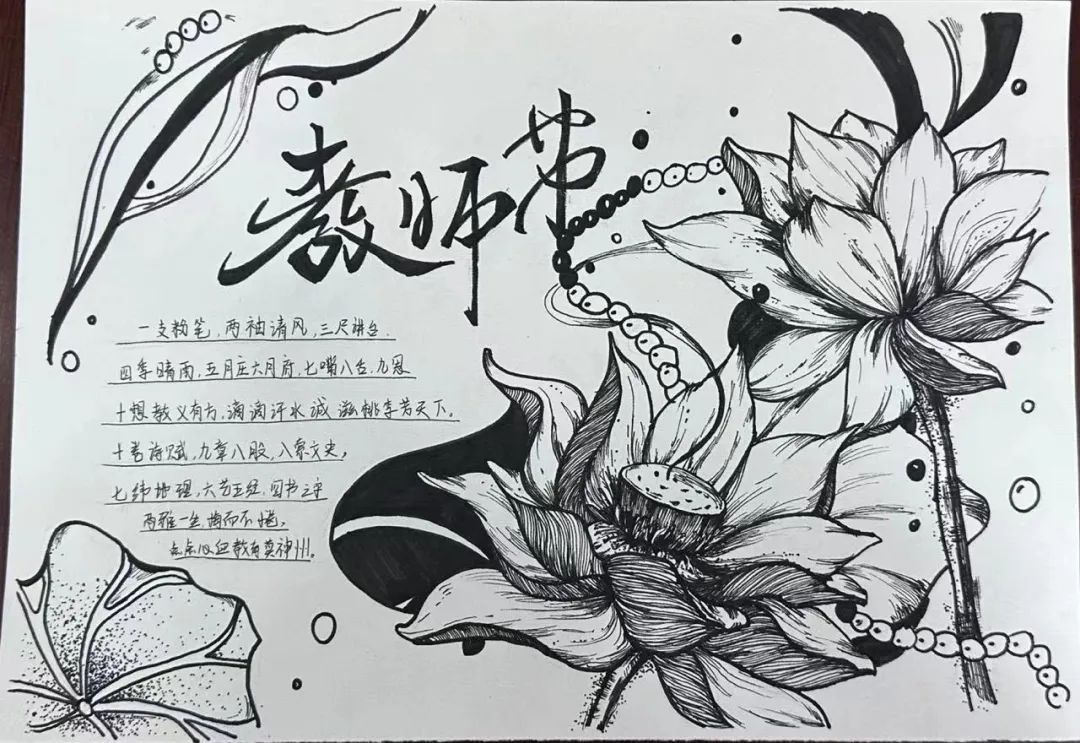 教师节
一支粉笔,两袖清风,三尺讲台.
四季晴雨,五月庄六月府,七嘴八舌,九思
十想教义有方,滴滴汗水诚滋桃李芳天下。
十卷诗赋,九章八股,八索文史,
七纬地理,六艺五经,四书三字
两雅一生诲而不倦,
点点心血教育英神州。